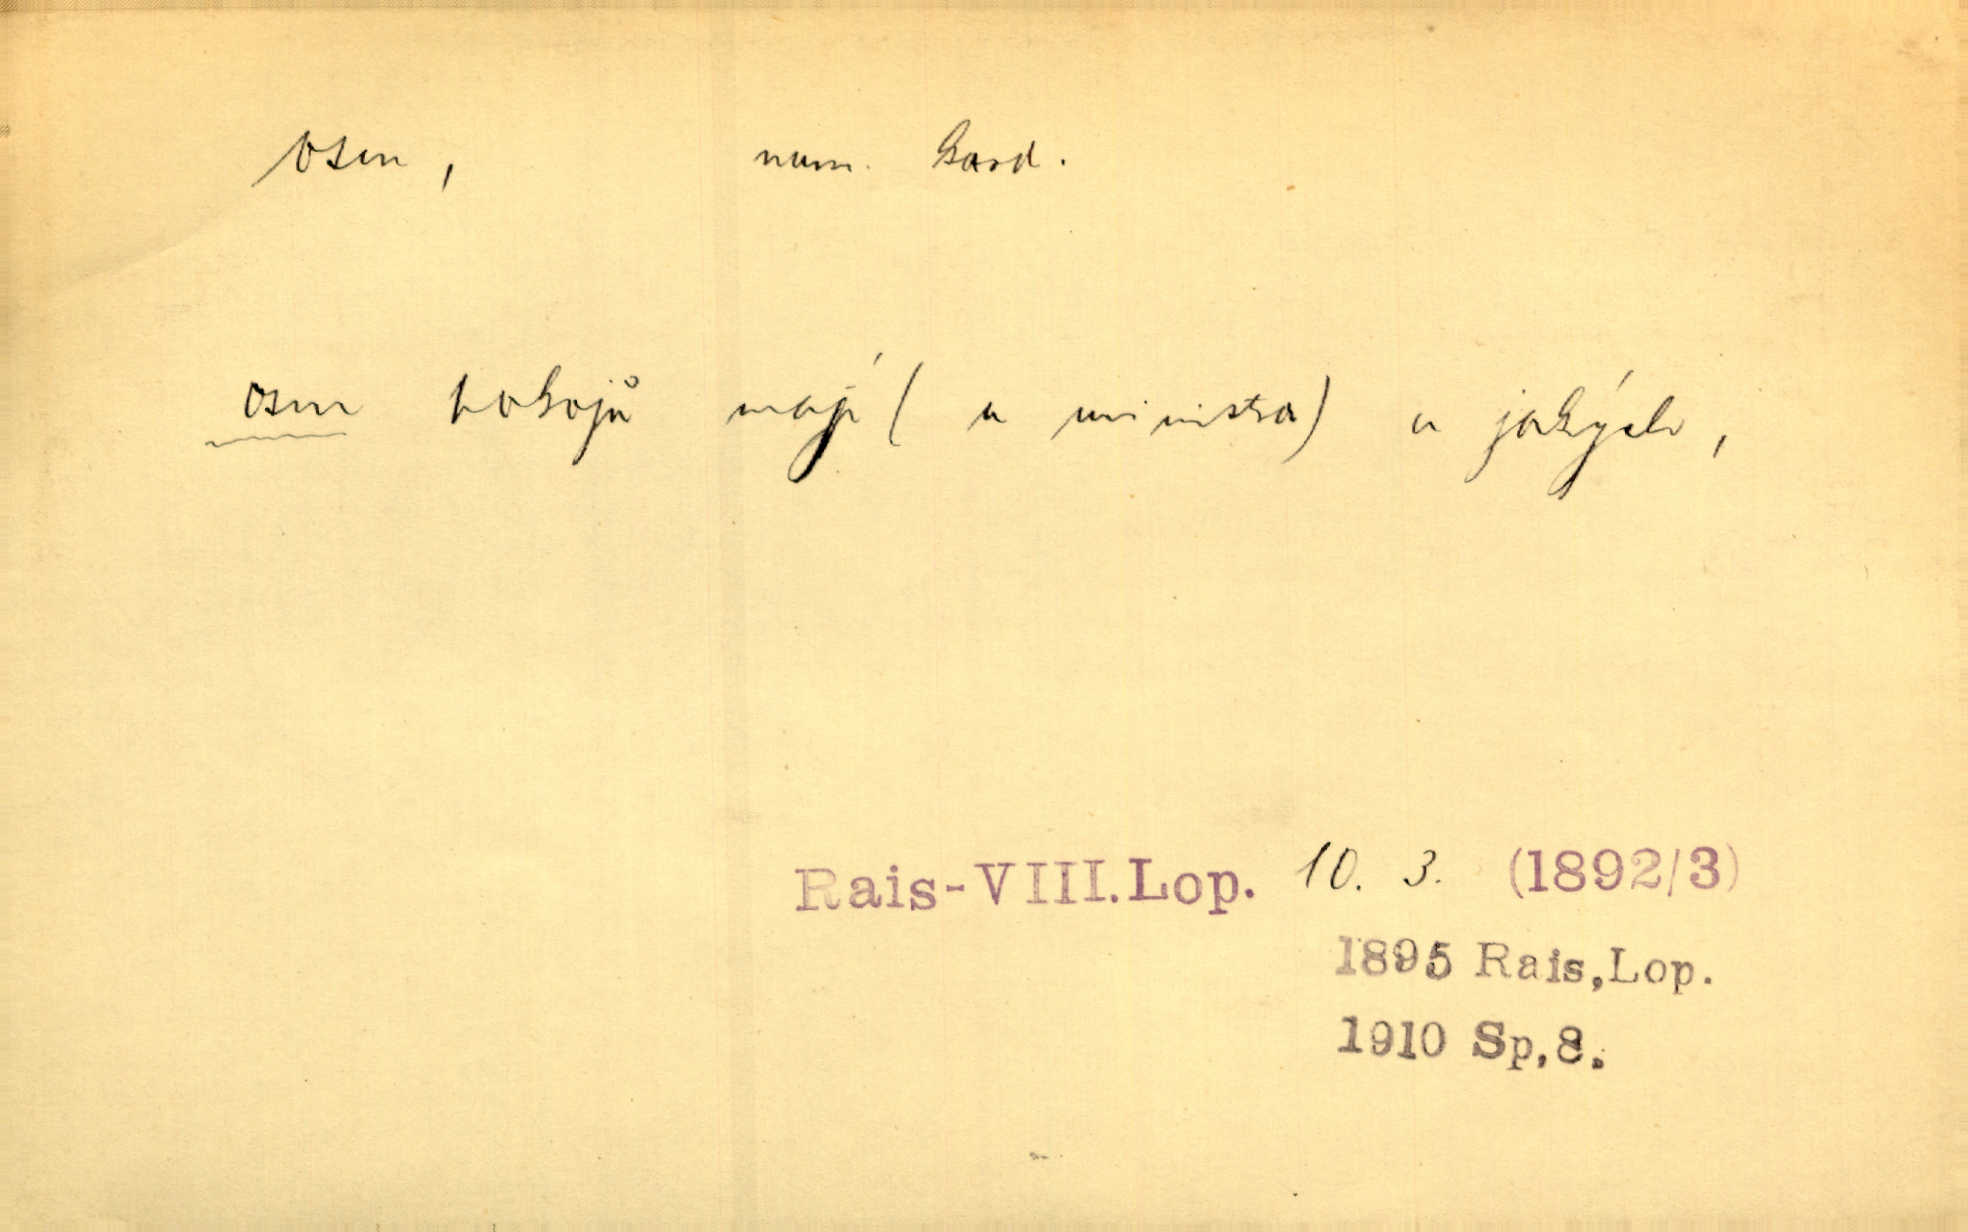 osm, num. kard.
osm pokojů mají (u ministra) a jakých,
Rais-VIII.Lop. 10. 3. (1892/3)
1895 Rais,Lop.
1910 Sp,8.